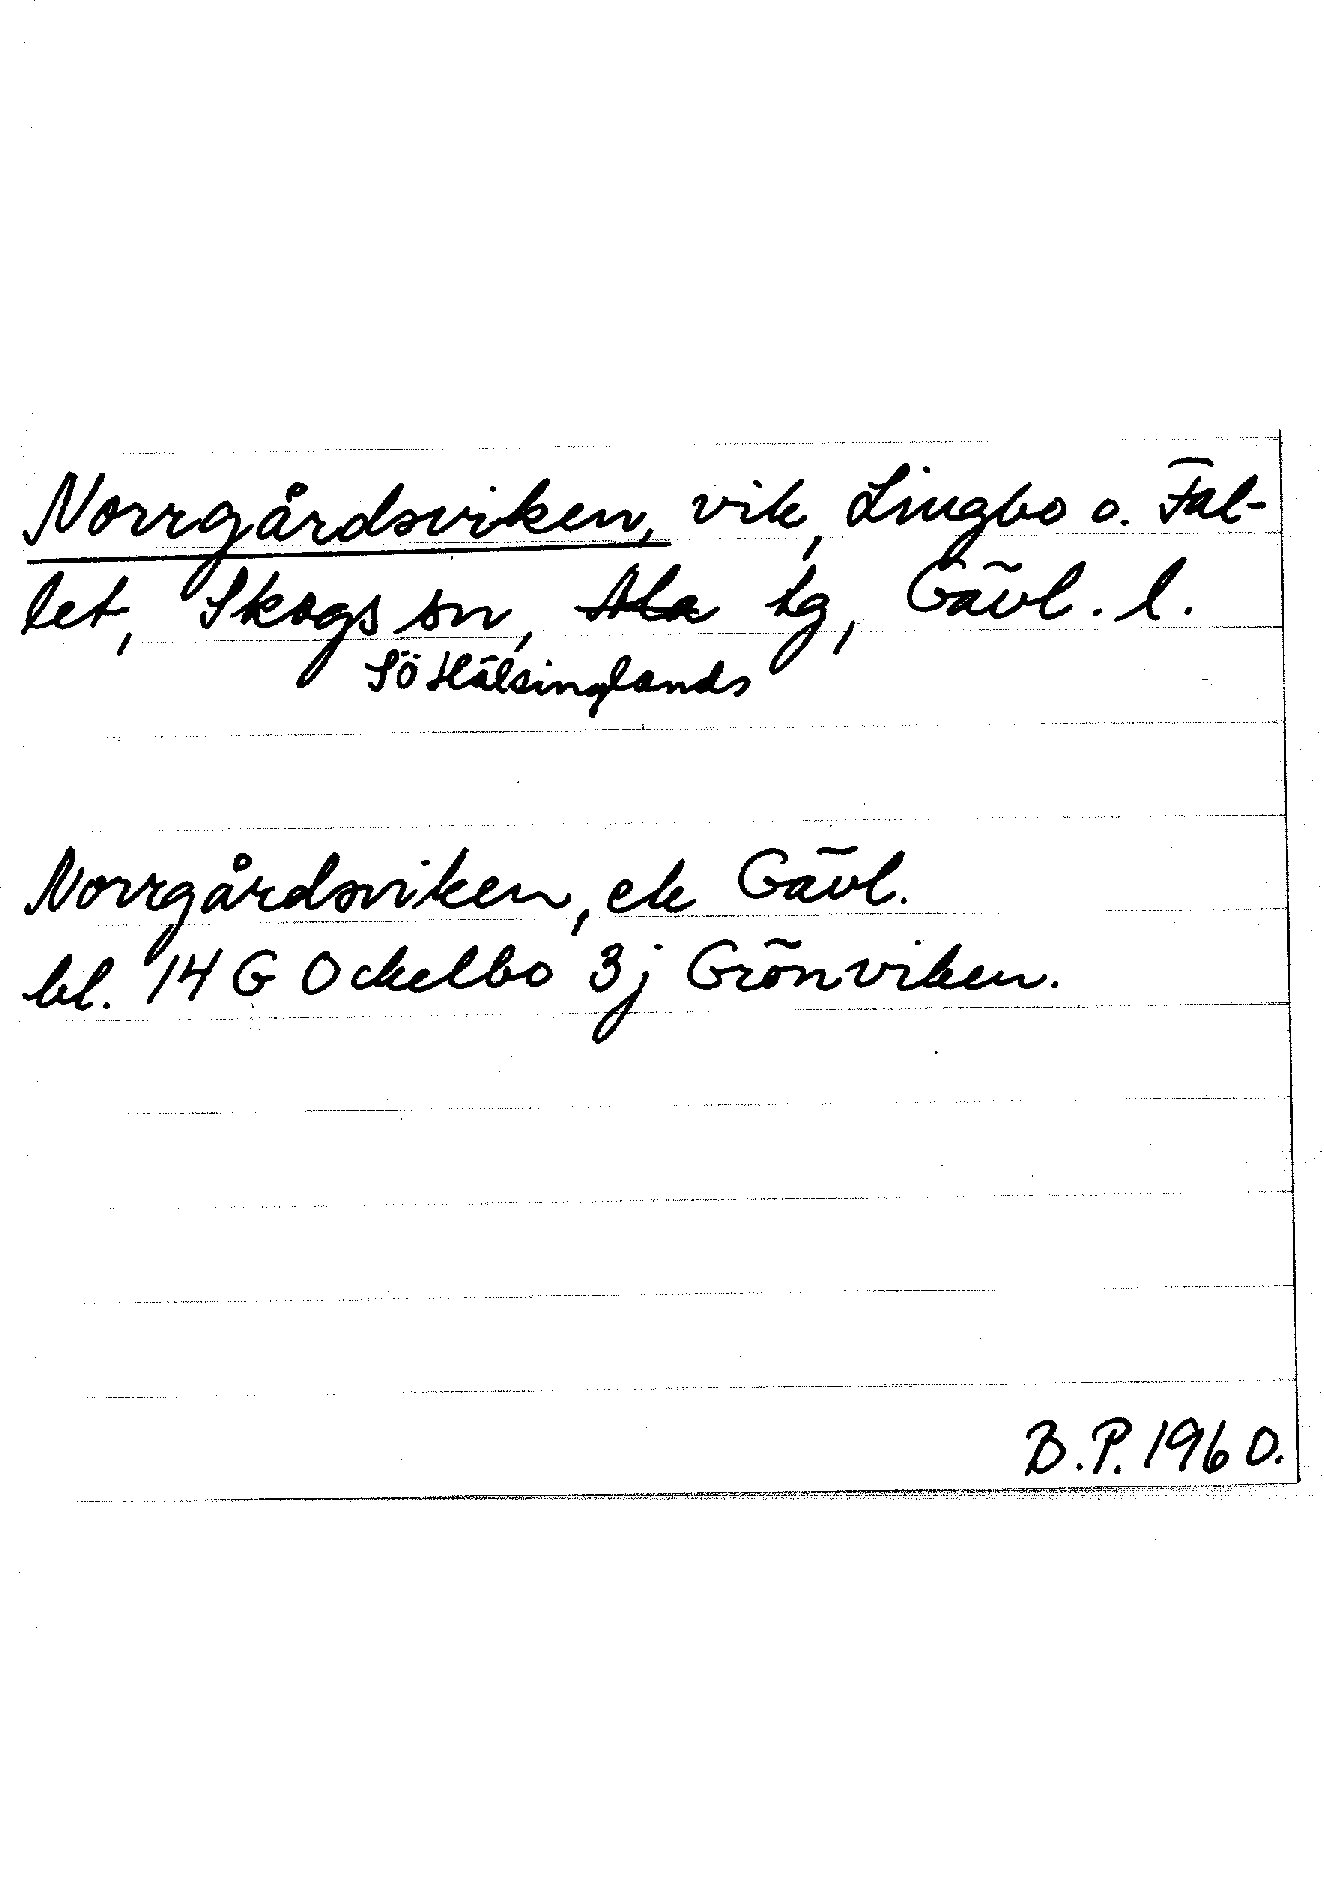 Norrgårdsviken, vik, Lingbo o. Fal-
let, Skogs sn, Ala tg, Gävl. l.
Sö Hälsinglands
Norrgårdsviken, ek Gävl.
bl. 14 G Ockelbo 3j Grönviken.
B.P. 1960.